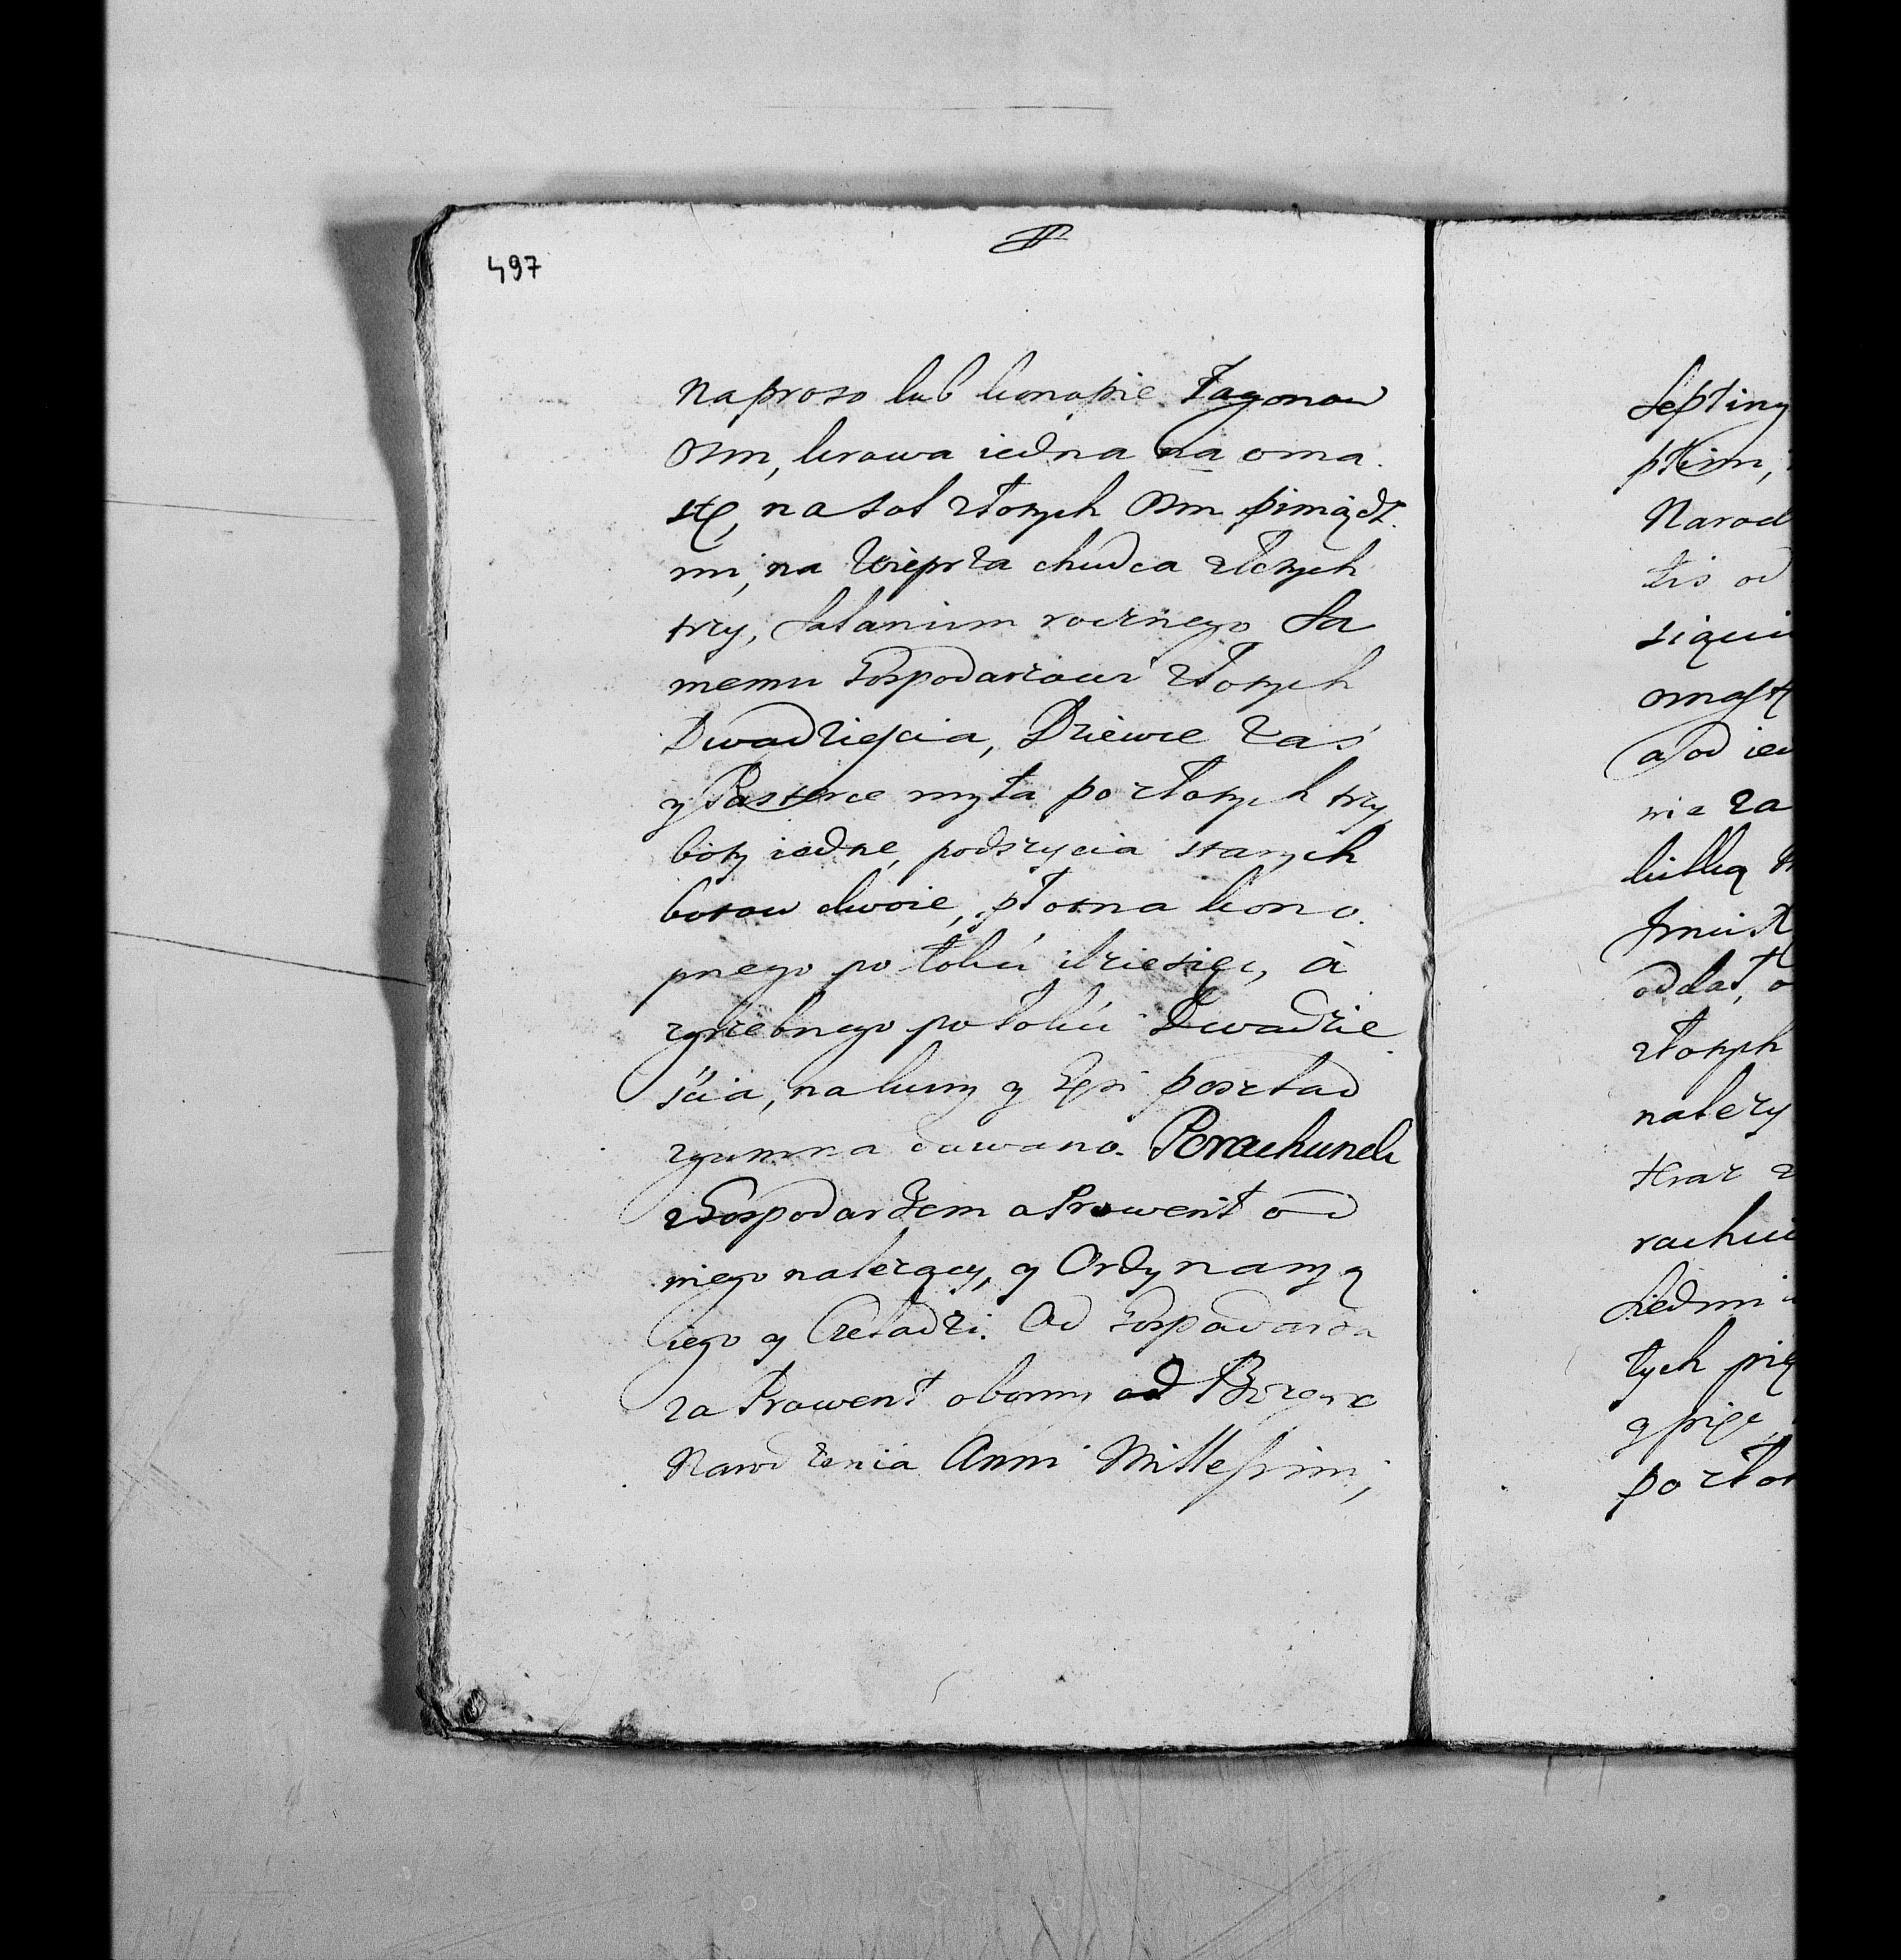 497
na proso lub konopie Zagonow
osm, krowa iedna na oma.
stę, na sol złotych osm pieniądz.
mi, na Wieprza chudca złotych
trzy, Salarium rocznego Sa
memu Gospodarzowi złotych
Dwadziescia, Dziewce zaś
y Pasterce myta po złotych trzy,
boty iedne, podszycia starych
botow dwoie, płotna kono.
pnego po łokci dziesięc, à
zgrzebnego po łokci Dwadzie
scia, na kury y gęsi poszlad
zgumna dawano. Porachunek
z Gospodarzem a Prowent od
niego należący, y Ordynaryą
iego y Czeladzi. Od Gospodarza
za Prowent oborny od Bożego
Narodzenia Anni Millesimi,
Septing
ptimi,
Narod
tis od
omast
a od ied
nie za
kilką
oddał, o
złotych
należy
teraz z
rachu
Siedmi
tych pię
y pięc
po złot